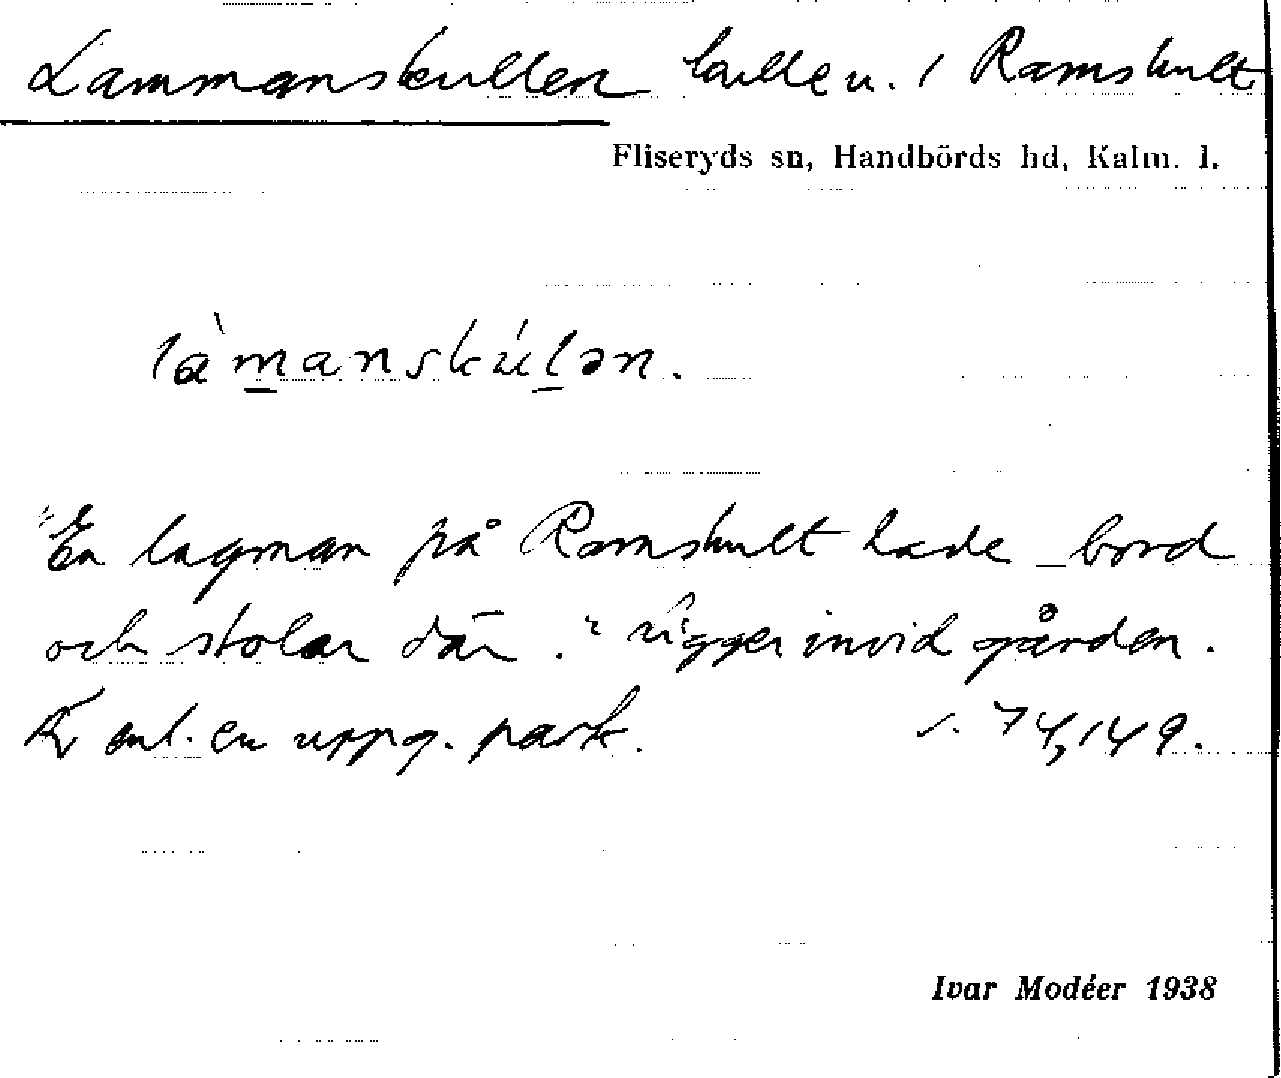 Lammanskullen kulle u. / Ramshult
Fliseryds sn, Handbörds hd, Kalm. l.
làmanskúlən.
"En lagman på Ramshult hade bord
och stolar där." Ligger invid gården.
Är enl. en uppg. park. s. 74,149.
Ivar Modéer 1938